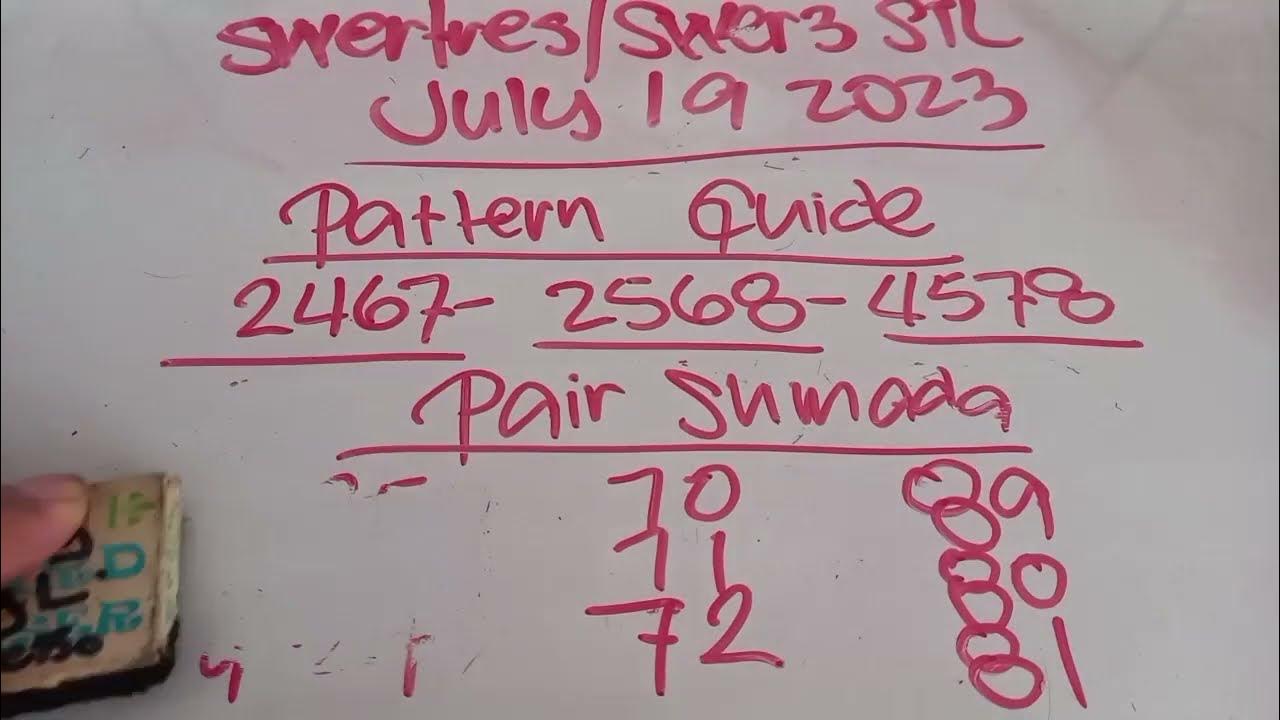 Swertres/Swer3 STL
July 19 2023
Pattern Guide
2467- 2568-4578
Pair Sumada
70 89
71 80
72 81